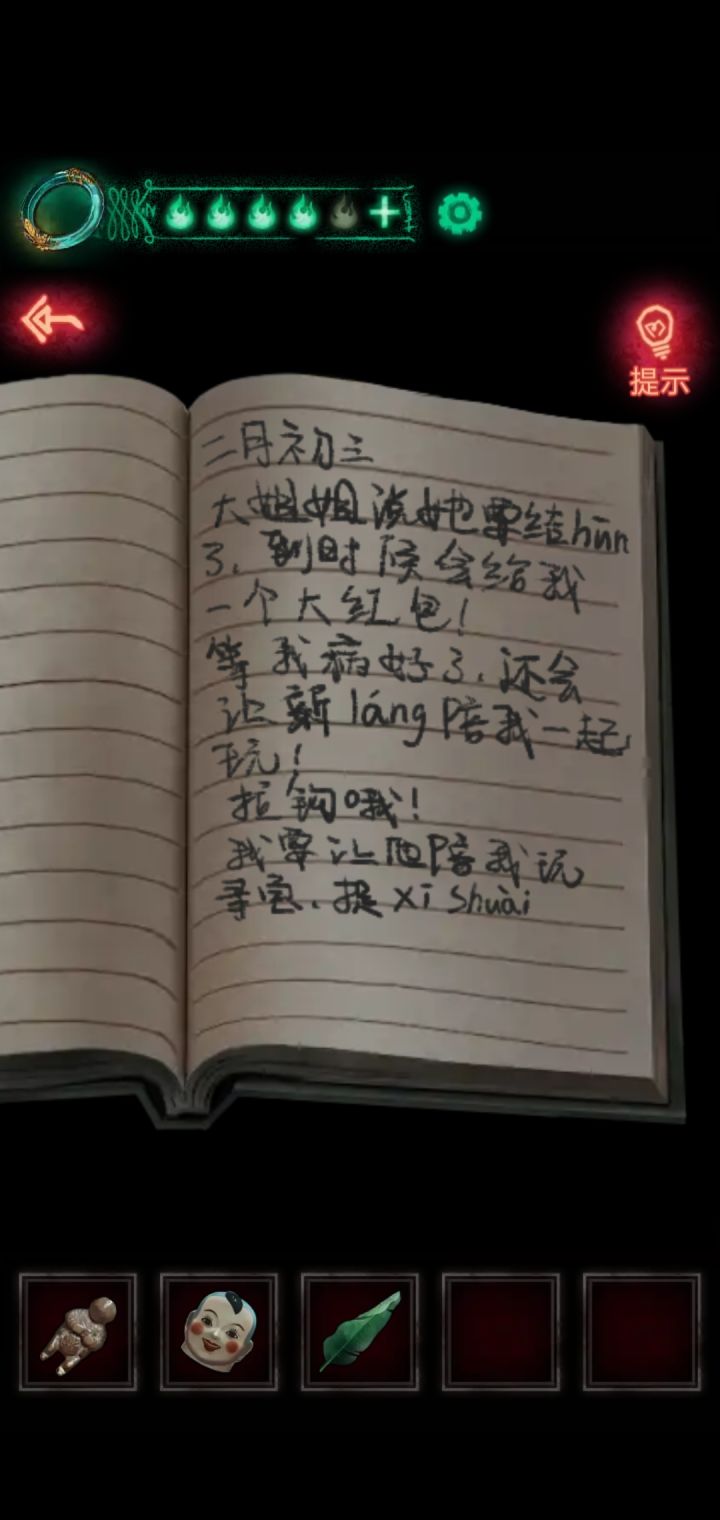 提示
二月初三
大姐姐说她要结hūn
了.到时候会给我
一个大红包!
等我病好了.还会
让新láng陪我一起
玩!
拉钩哦!
我要让他陪我玩
寻宝.捉xī shuài